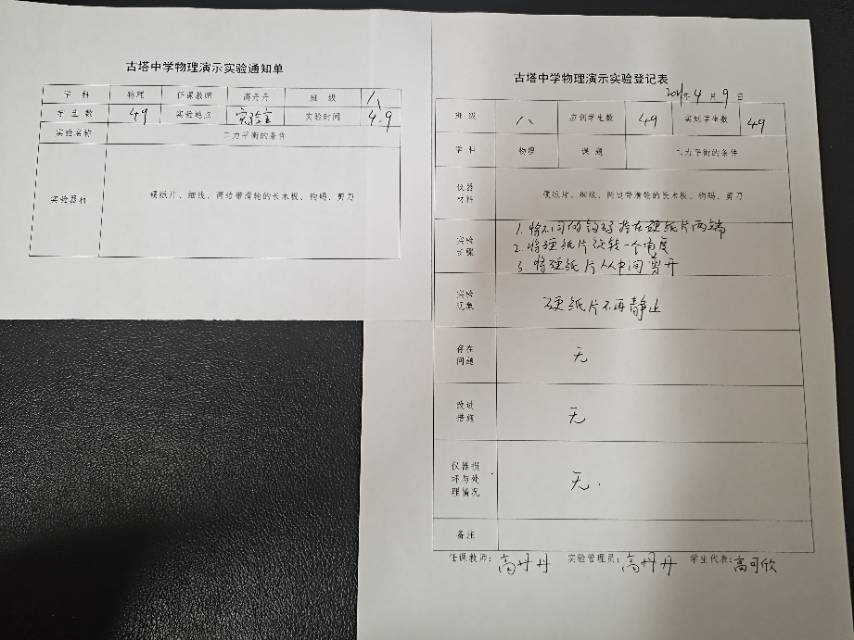 古塔中学物理演示实验通知单
学 科 物理 任课教师 高丹丹 班 级 八
学 生 数 49 实验地点 实验室 实验时间 4.9
实验名称 二力平衡的条件
实验器材 硬纸片、细线、两边带滑轮的长木板、钩码、剪刀
古塔中学物理演示实验登记表
年 4 月 9 日
班 级 八 应到学生数 49 实到学生数 49
学 科 物理 课 题 二力平衡的条件
仪器材料 硬纸片、细线、两边带滑轮的长木板、钩码、剪刀
实验步骤
1. 将不同的钩码挂在硬纸片两端
2. 将硬纸片旋转一个角度
3. 将硬纸片从中间剪开
实验现象 硬纸片不再静止
存在问题 无
改进措施 无
仪器损坏与处理情况 无.
备注
任课教师：高丹丹 实验管理员：高丹丹 学生代表：高可欣